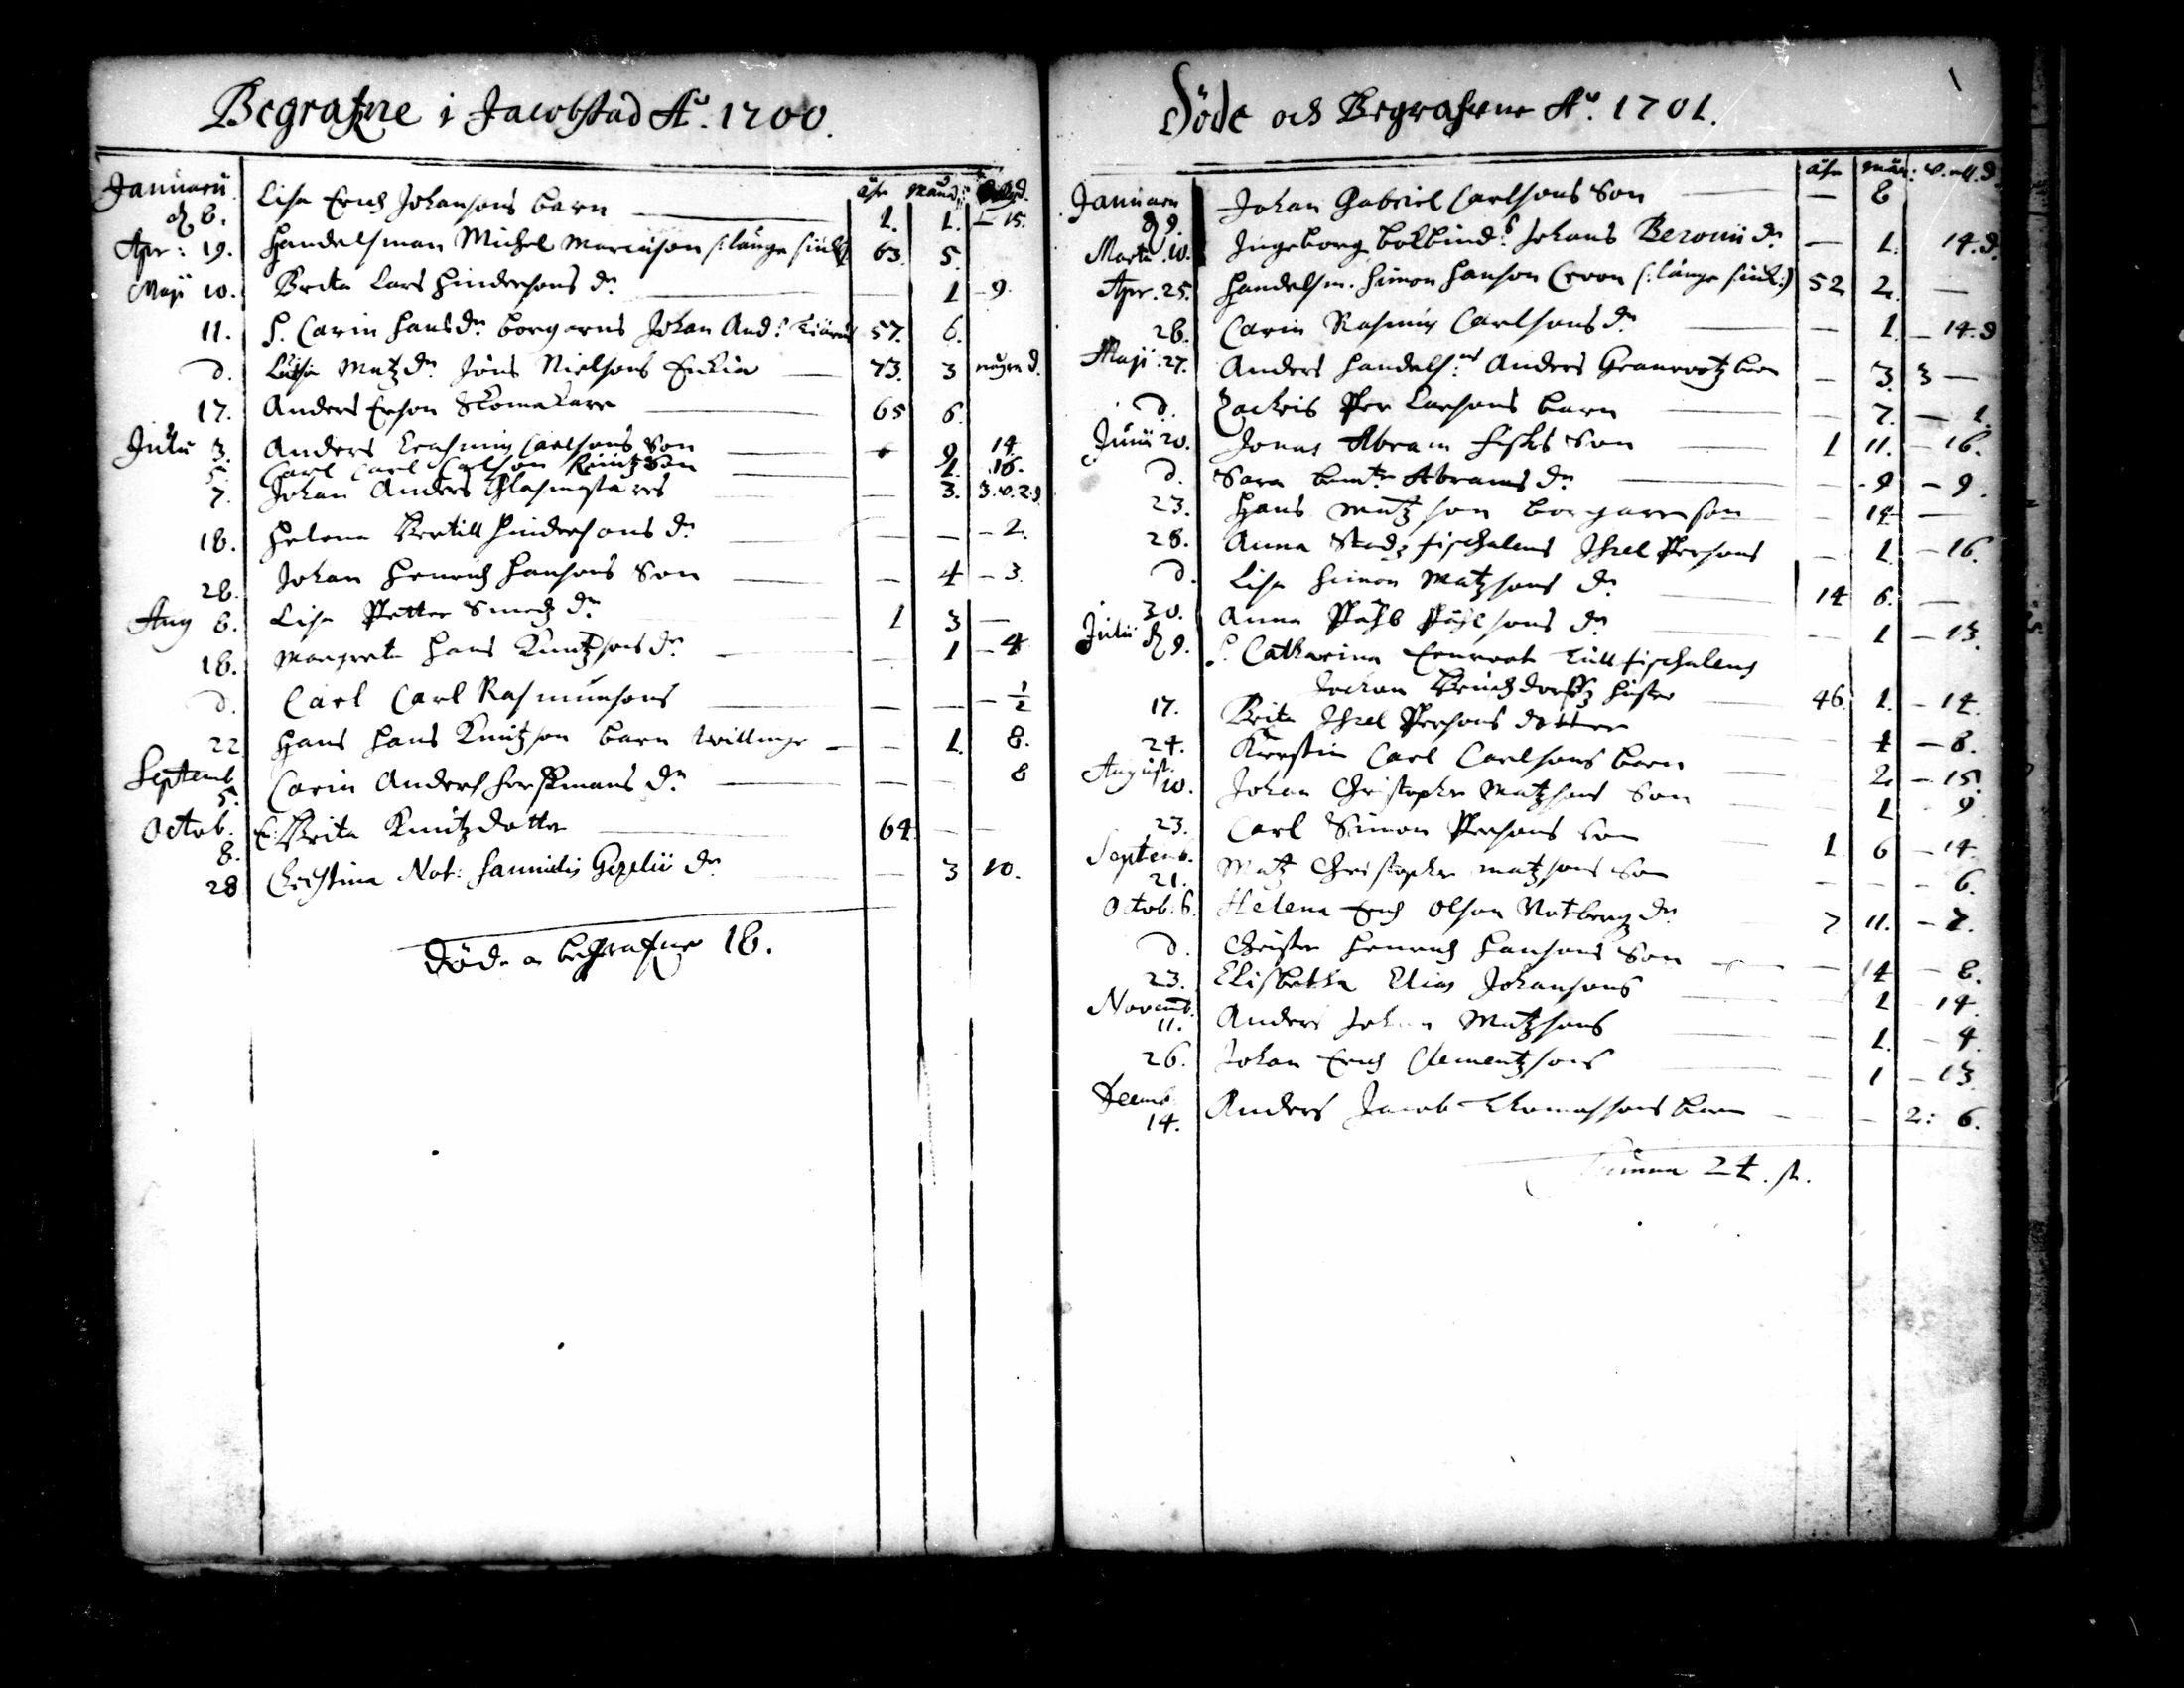 Begrafne i Jacobstad Ao. 1700.
åhr månd: d.
Januarii
d 6. Lisa Erich Johansons barn 1. 1. – 15.
Apr: 19. Handelsman Michel Marcuson (: länge siuk :) 63. 5.
Maji 10. Brita Lars Hindersons dr. — 1 – 9.
11. H. Carin Hansdr. borgarens Johan And:s 57. 6.
d. Matzdr. Jöns Nielsons Enkia 73. 3 någre d.
17. Anders Erson Skomakare 65 6.
Julii 3. Anders Erasmus Carlsons Son 9 14.
5. Carl Carl Carlson Knutz Son 1. 16.
7. Johan Anders Glasmestares — 3. 3.v.2.d
18. Helena Bertill Hindersons dr. — — – 2.
28. Johan Henrich Hansons Son — 4 – 3.
Aug 6. Lisa Petter Smedz dr. 1 3 —
18. Margreta Hans Knutzsons dr. — 1 – 4
d. Carl Carl Rasmunsons — — – 1/2
22 Hans Hans Knutzson barn twillinge — – 1. 8.
Septemb.
5. Carin Anders Forssmans dr. — — 8
Octob.
8. E: Brita Knutzdotter 64. — —
28 Christina Not: Samuelis Gezelii dr. — 3 10.
Döde o begrafne 18.
Döde och Begrafne Ao. 1701.
åhr mån: v. ell. d.
Januarii
d 9. Johan Gabriel Carlsons Son — 8
Martii 10. Ingeborg bokbind:s Johans Beronii dr. — 1. 14.d.
Apr. 25. Handelsm. Simon Hanson Croon (: länge siuk :) 52 2. —
28. Carin Rasmus Carlsons dr. — 1. – 14.d
Maji: 27. Anders Handels:ns Anders Granrootz barn — 3. 3 —
d. Zachris Per Larsons barn — 7. — 1.
Junii 20. Jonas Abram Fisks Son 1 11. – 16.
d. Sara Abrams dr. — 9 – 9.
23. Hans Matzson borgares son — 14 —
28. Anna Stadz fischalens Isrel Persons — 1. – 16.
d. Lisa Simon Matzsons dr. 14 6. —
30. Anna Påhl Påhlsons dr. — 1 – 13.
Julii d 9. H. Catharina Eenroot Tull fischalens
Jochan hustro 46. 1. – 14.
17. Brita Isrel Persons dotter 1 – 8.
24. Kerstin Carl Carlsons barn 2 – 15.
August.
10. Johan Christopher Matzsons Son 1 – 9.
23. Carl Simon Persons Son 1 6 – 14.
Septemb.
21. Matz Christopher Matzsons Son — — – 6.
Octob. 6. Helena Erich Olson Notberg dr. 7 11. – 2.
d. Christer Henrich Hansons Son — 14 – 8.
23. Elisbetha Elias Johansons 1 14.
Novemb.
11. Anders Johan Matzsons — 1. – 4.
26. Johan Erich Clementzsons — 1 – 13.
Decemb.
14. Anders Jacob Thomassons barn — — 2: 6.
Summa 24. st.